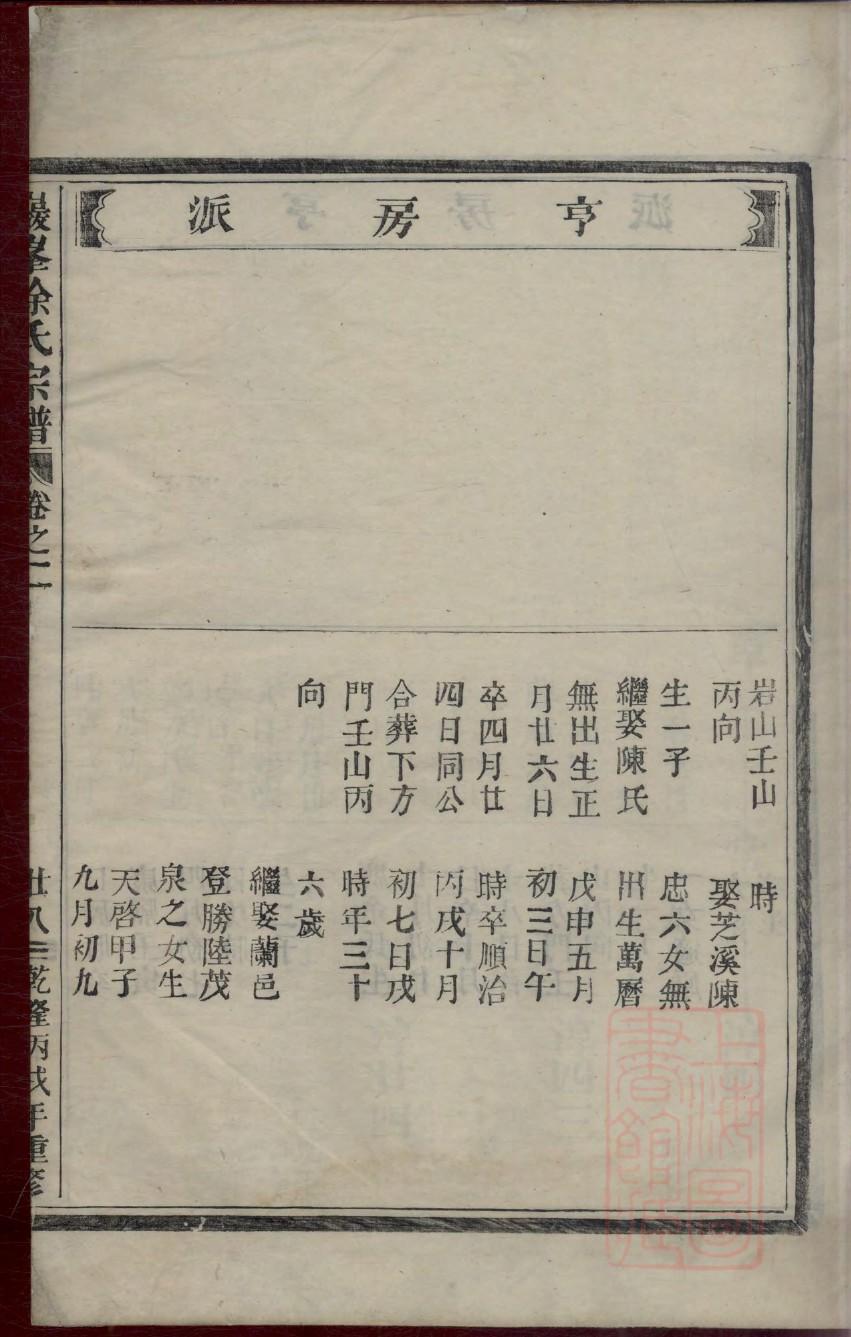 亨房派
岩山壬山
丙向
生一子
繼娶陳氏
無出生正
月廿六日
卒四月廿
四日同公
合葬下方
門壬山丙
向
時
娶芝溪陳
忠六女無
出生萬曆
戊申五月
初三日午
時卒順治
丙戌十月
初七日戌
時年三十
六歲
繼娶蘭邑
登勝陸茂
泉之女生
天啓甲子
九月初九
峯徐氏宗譜
卷之
乾隆丙戌年重修
上海圖
書館藏